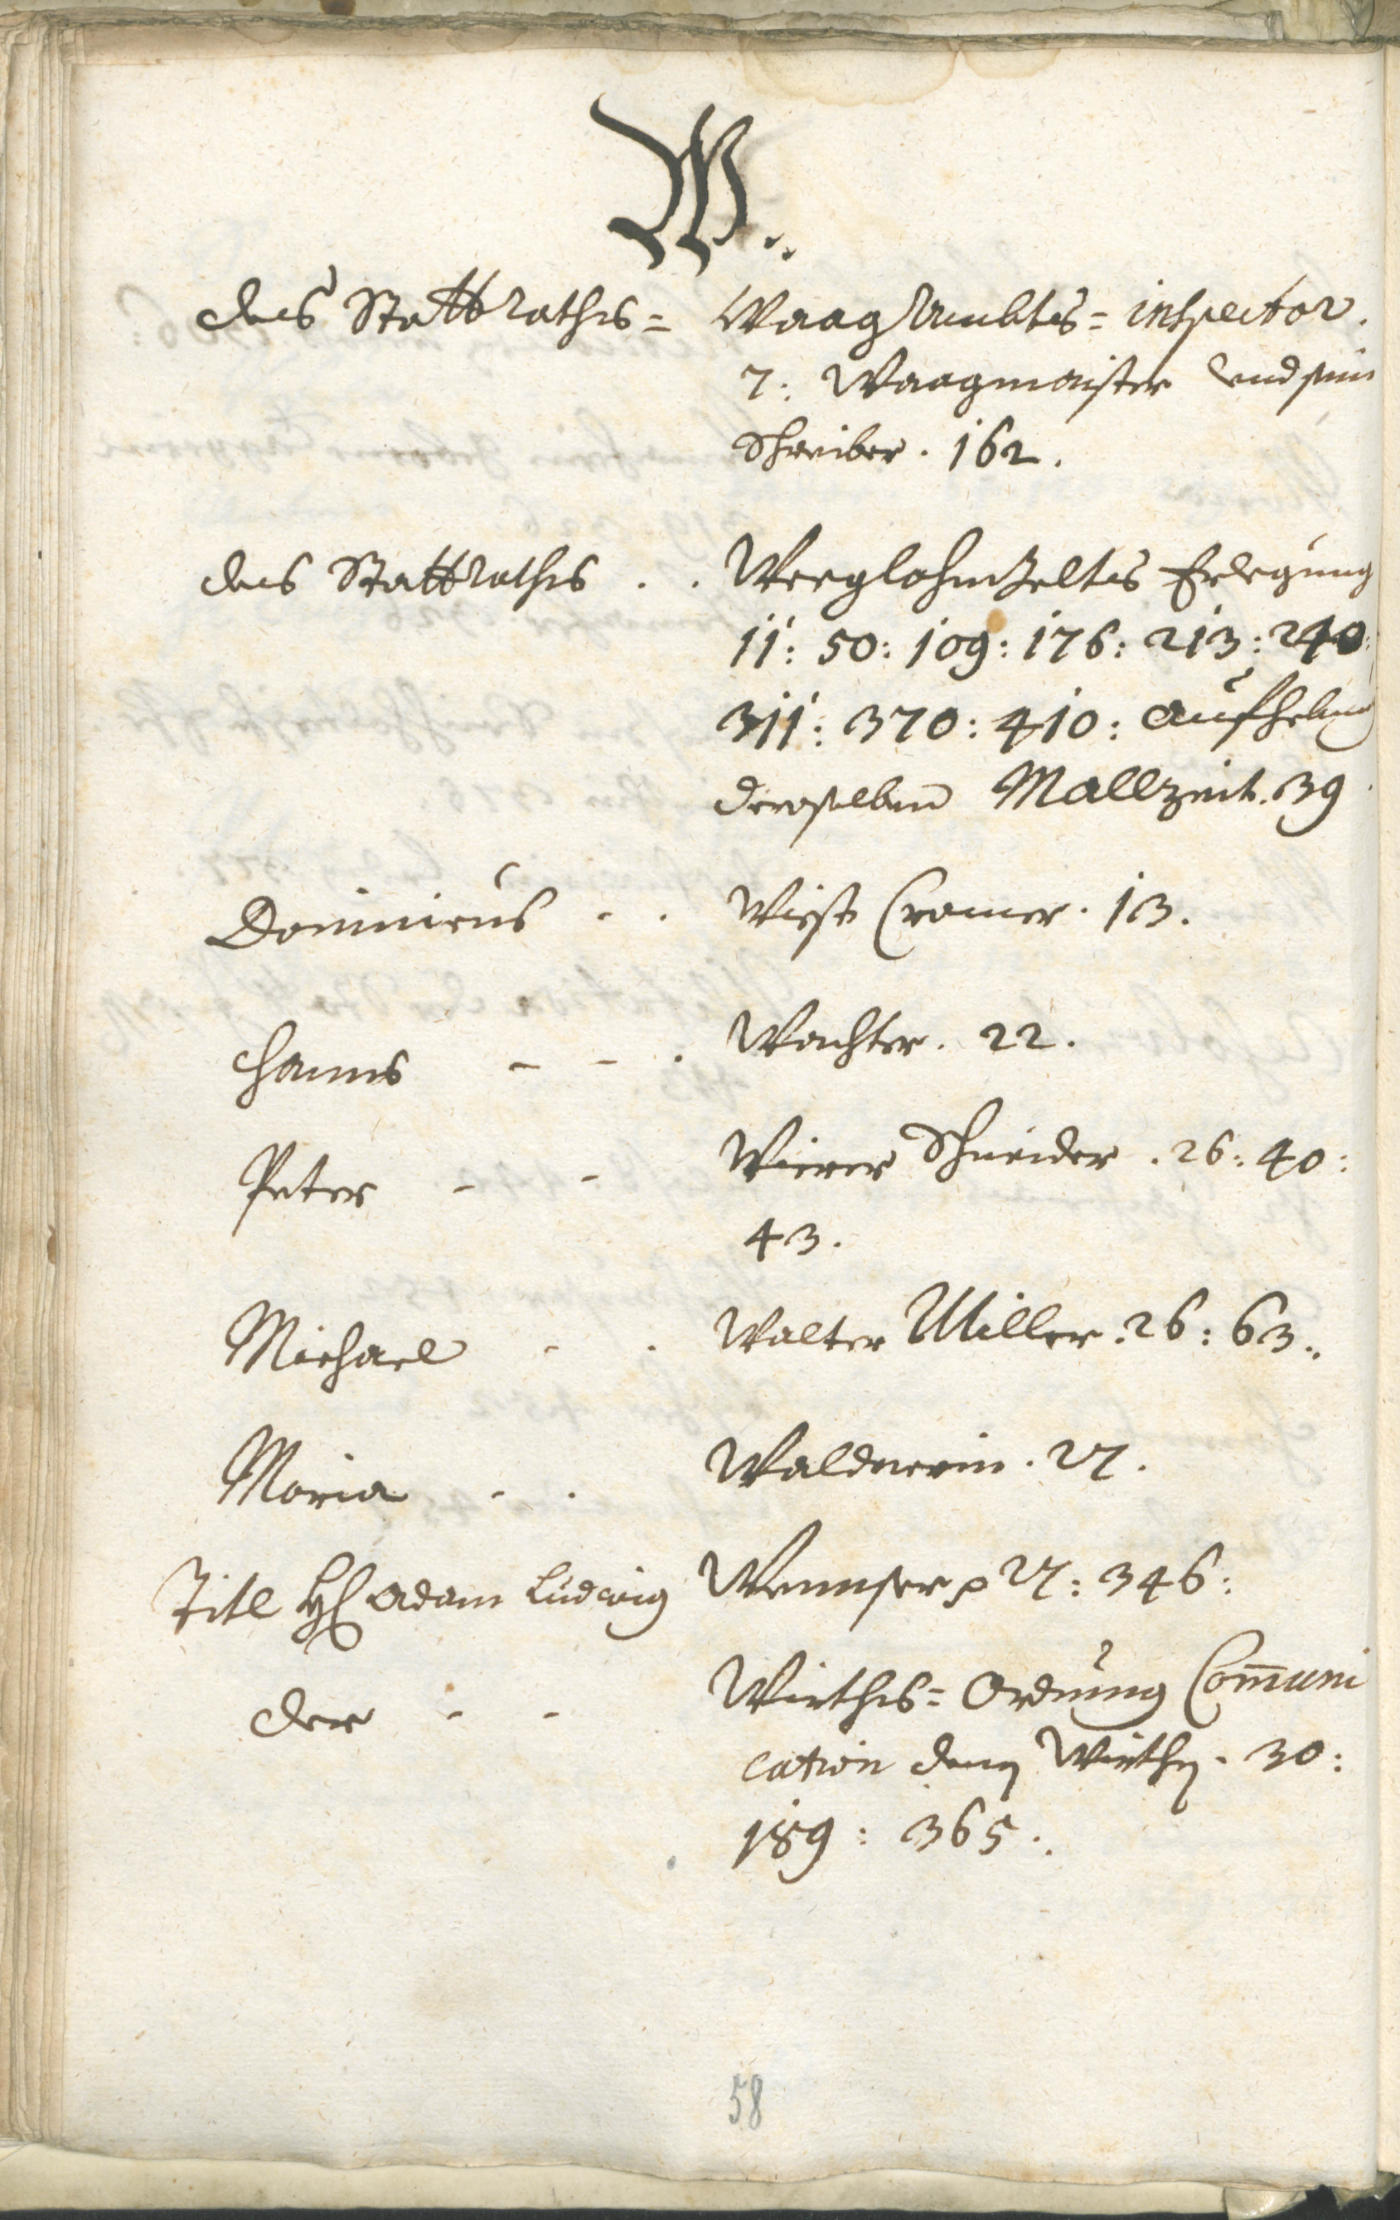 W.
des Stattraths= Waag Ambts= inspector.
7: Waagmaister und sein
Schreiber. 162.
des Stattraths . . Weeglohn Zeltes Erlegung
11: 50: 109: 176: 213: 240:
311: 370: 410: aufheben
deroselben Mallzeit. 39
Dominicus - . Wiest Cramer. 13.
Hanns - - . Wachter. 22.
Peter - - Wierer Schneider. 26: 40:
43.
Michael - . Walter Miller. 26: 63.
Maria - . Waldnerin. 27.
Titl H: Adam Ludwig Wennser p 27: 346:
der - - Wirths= Ordnung Com̄uni
cation den Wirthen. 30:
189: 365.
58